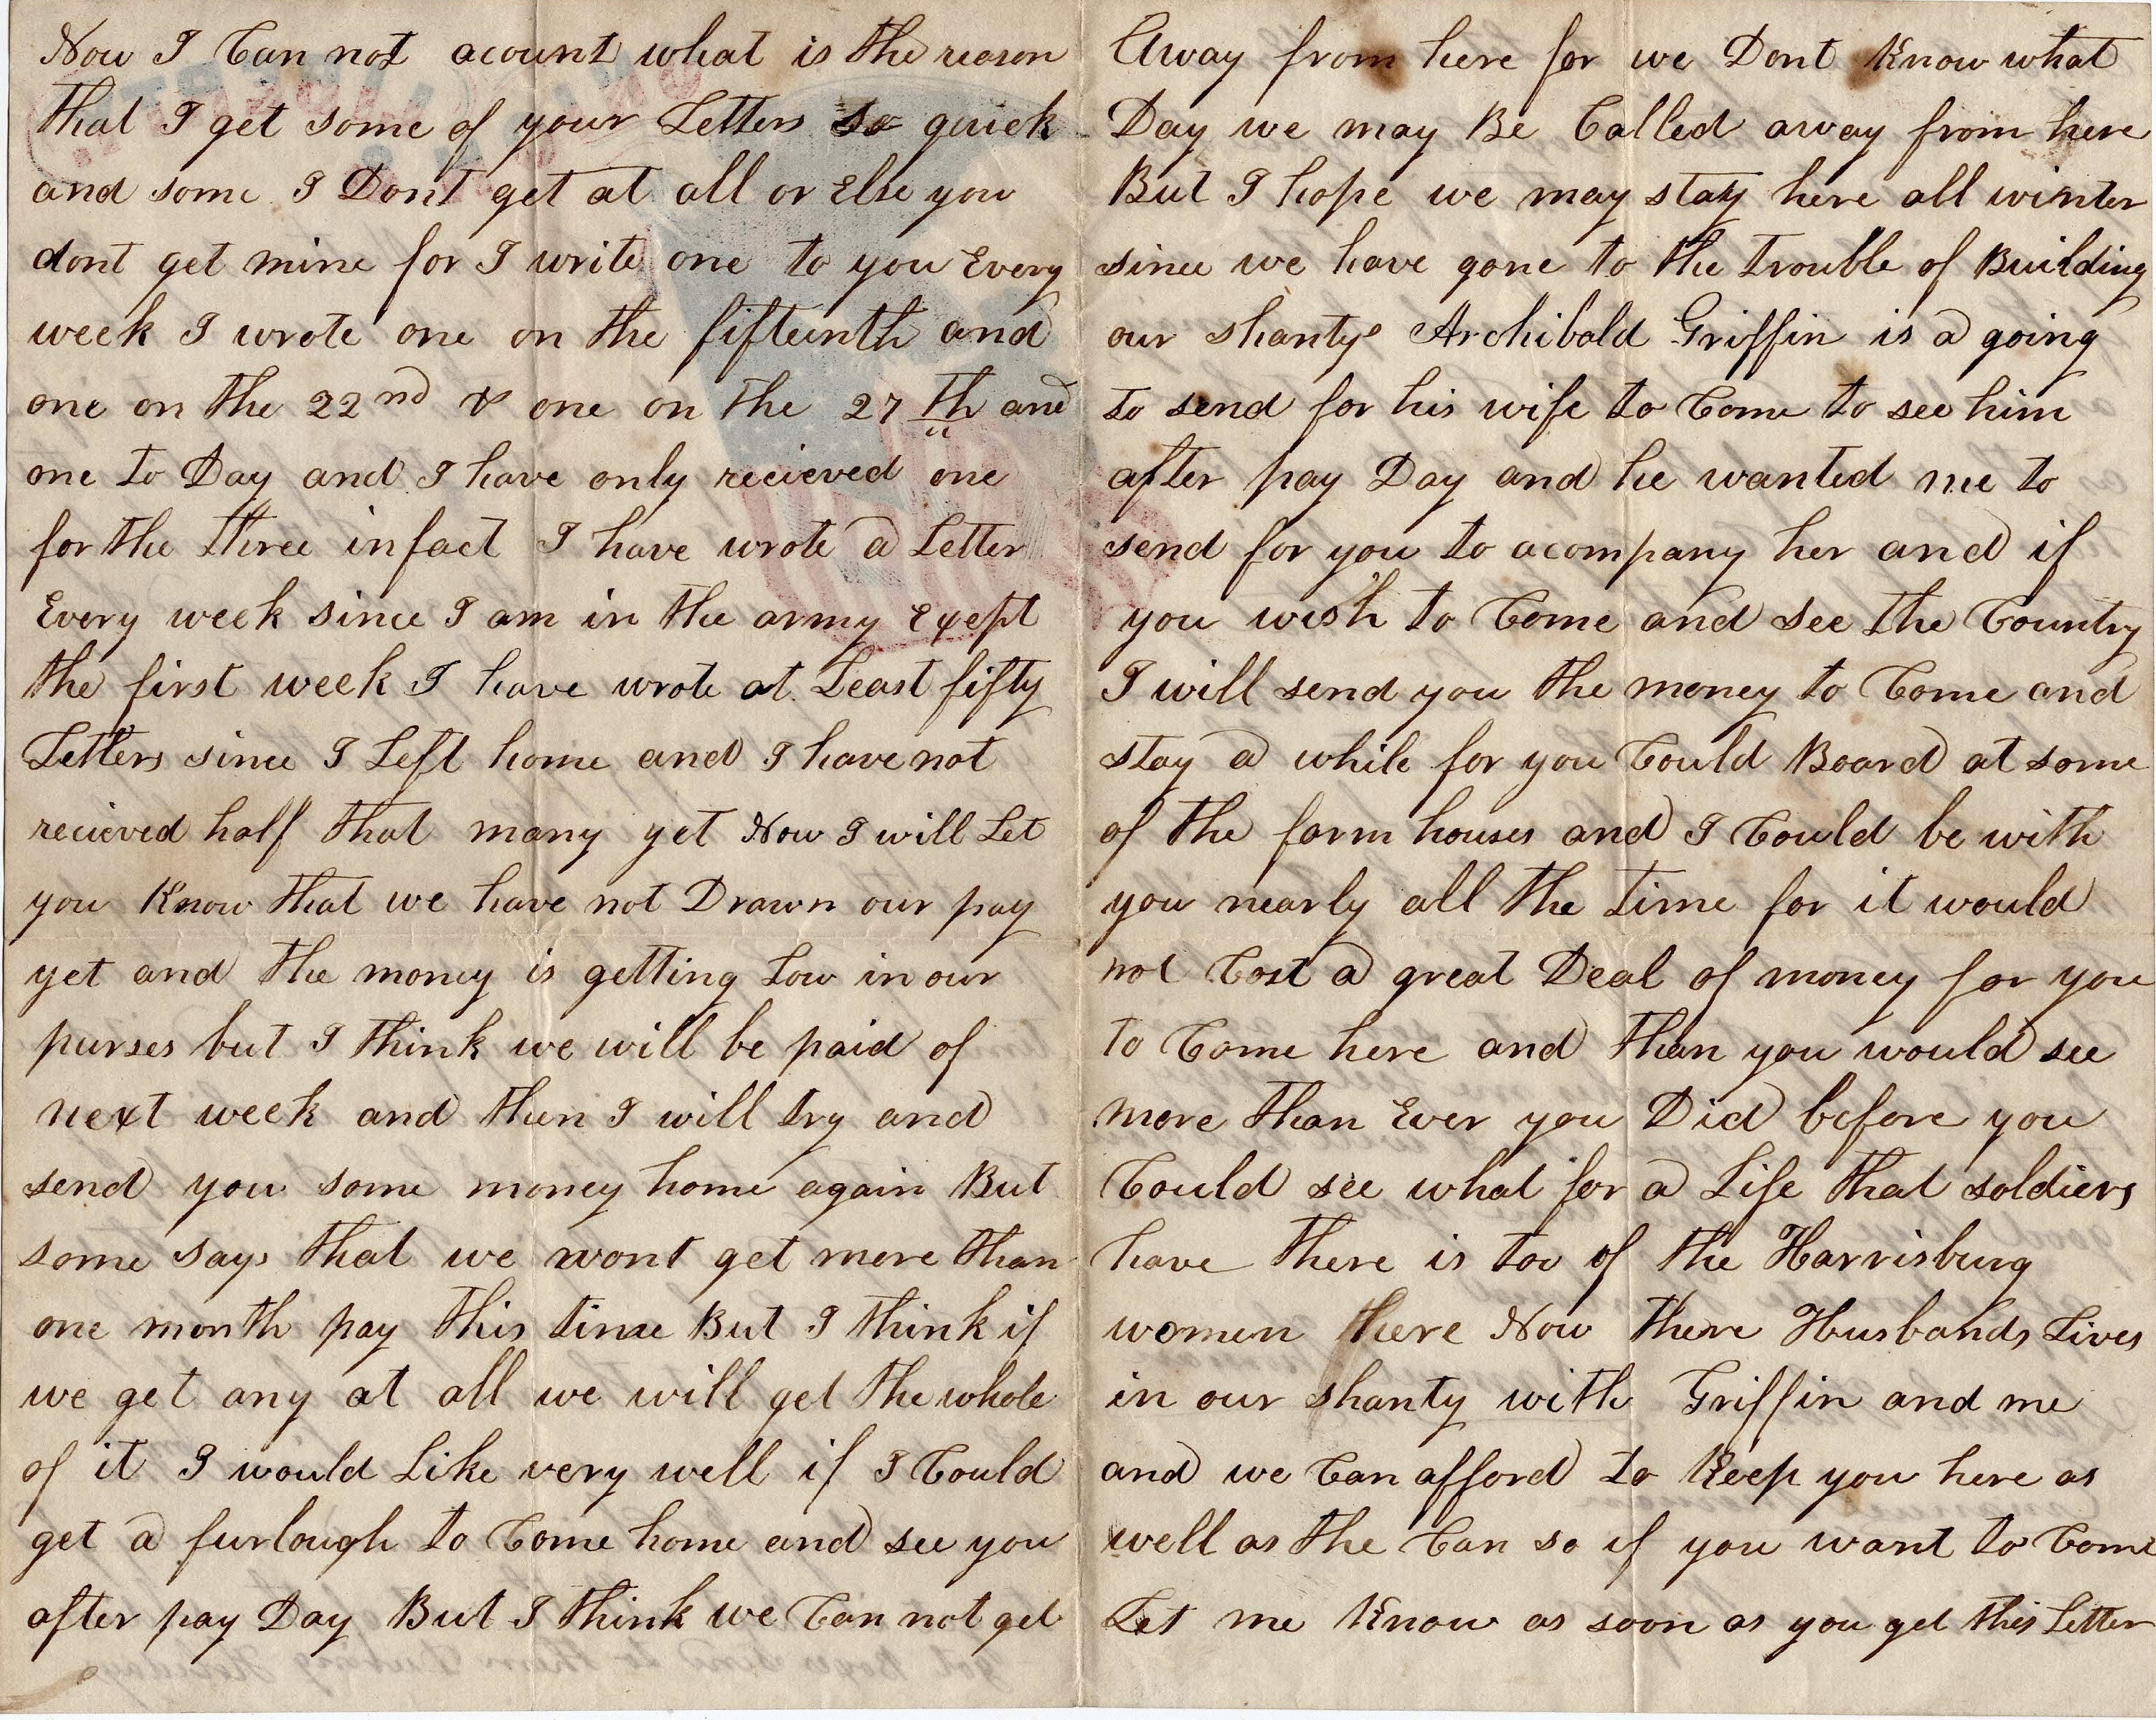 Now I Can not acount what is the reason
that I get some of your Letters so quick
and some I Dont get at all or Else you
dont get mine for I write one to you Every
week I wrote one on the fifteenth and
one on the 22nd & one on the 27th and
one to Day and I have only recieved one
for the three infact I have wrote a Letter
Every week since I am in the army Exept
the first week I have wrote at Least fifty
Letters since I Left home and I have not
recieved half that many yet Now I will Let
you Know that we have not Drawn our pay
yet and the money is getting Low in our
purses but I think we will be paid of
next week and then I will try and
send you some money home again But
some says that we wont get more than
one month pay this time But I think if
we get any at all we will get the whole
of it I would Like very well if I Could
get a furlough to Come home and see you
after pay Day But I think we Can not get
Away from here for we Dont Know what
Day we may Be Called away from here
But I hope we may stay here all winter
since we have gone to the trouble of Building
our shantys Archibald Griffin is a going
to send for his wife to Come to see him
after pay Day and he wanted me to
send for you to acompany her and if
you wish to Come and see the Country
I will send you the money to Come and
stay a while for you Could Board at some
of the farm houses and I Could be with
you nearly all the time for it would
not Cost a great Deal of money for you
to Come here and than you would see
more than Ever you Did before you
Could see what for a Life that soldiers
have there is too of the Harrisburg
women there Now there Husbands Lives
in our shanty with Griffin and me
and we Can afford to Keep you here as
well as the Can so if you want to Come
Let me Know as soon as you get this Letter